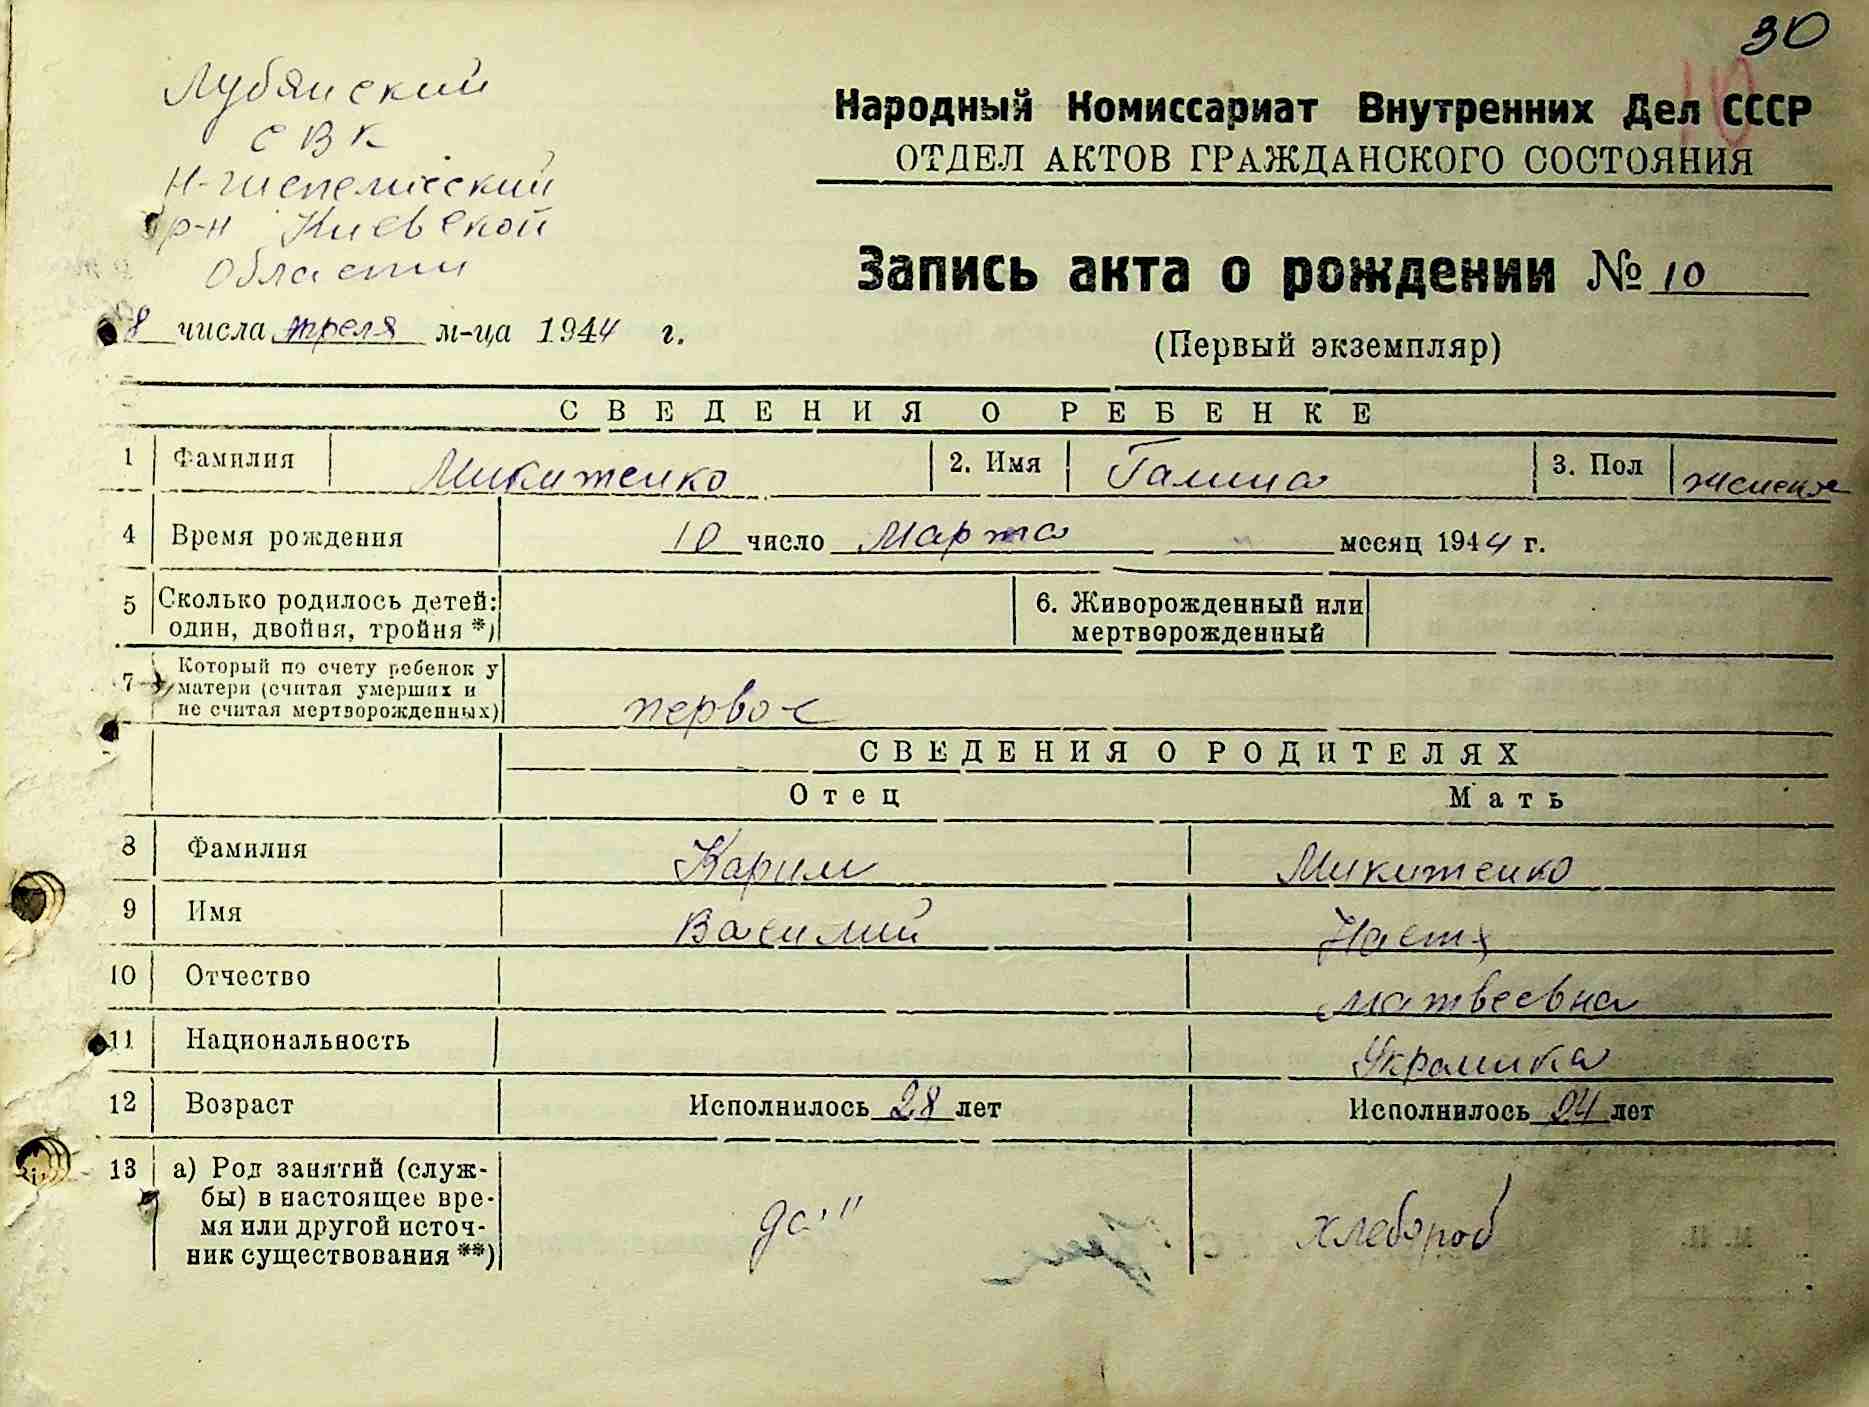 30
Лубянский
СВК
Н-Шепелический
р-н Киевской
Области
Народный Комиссариат Внутренних Дел СССР
ОТДЕЛ АКТОВ ГРАЖДАНСКОГО СОСТОЯНИЯ
Запись акта о рождении № 10
8 числа апреля м-ца 1944 г.
(Первый экземпляр)
СВЕДЕНИЯ О РЕБЕНКЕ
1 Фамилия Микитенко 2. Имя Галина 3. Пол женск
4 Время рождения 10 число Марта месяц 1944 г.
5 Сколько родилось детей: один, двойня, тройня *) 6. Живорожденный или мертворожденный
7 Который по счету ребенок у матери (считая умерших и не считая мертворожденных) первое
СВЕДЕНИЯ О РОДИТЕЛЯХ
Отец Мать
8 Фамилия Карим Микитенко
9 Имя Василий Настя
10 Отчество Матвеевна
11 Национальность Украинка
12 Возраст Исполнилось 28 лет Исполнилось 24 лет
13 а) Род занятий (служ-
бы) в настоящее вре-
мя или другой источ-
ник существования **) хлебороб